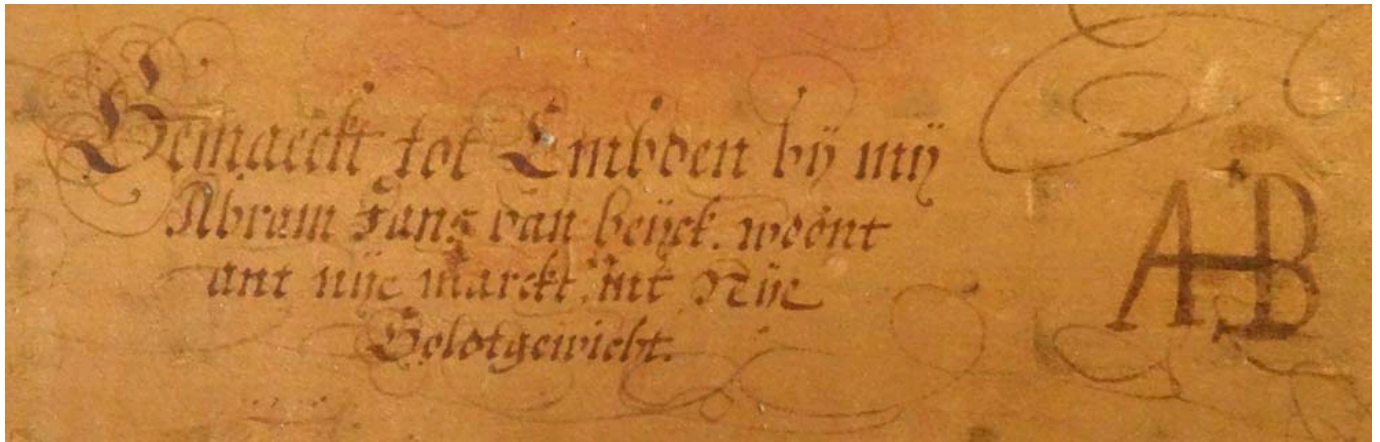 Gemaeckt tot Embden bÿ mÿ
Abram Jans van beÿck. woont
ant nije marckt. int Nije
Goldtgewicht.
AB